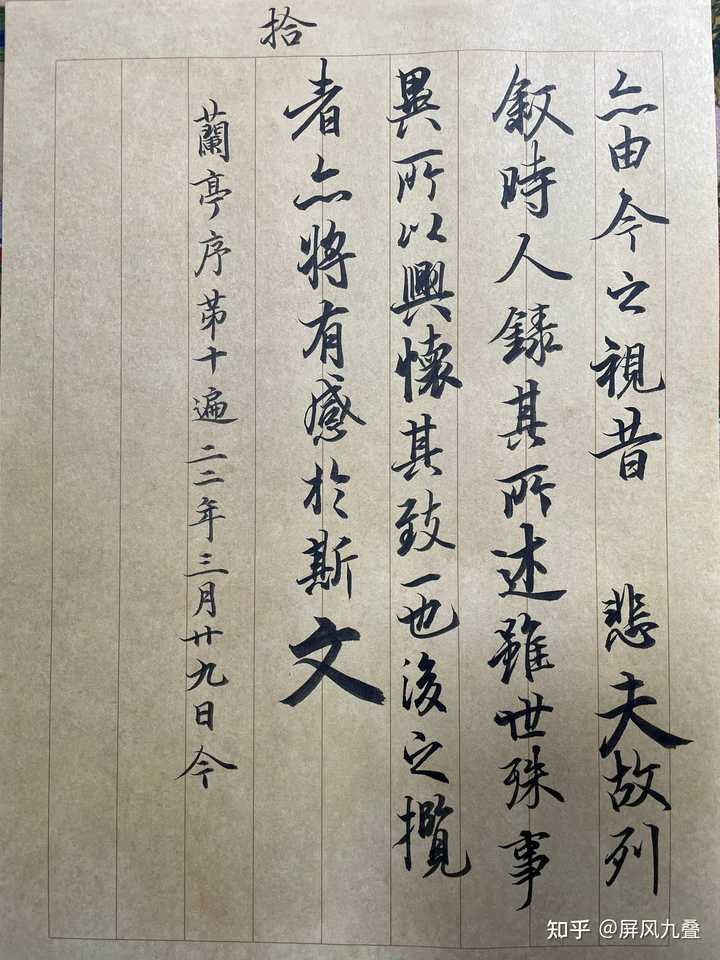 拾
亦由今之視昔 悲夫故列
叙時人錄其所述雖世殊事
異所以興懷其致一也後之攬
者亦將有感於斯文
蘭亭序第十遍二二年三月廿九日今
知乎 @屏风九叠